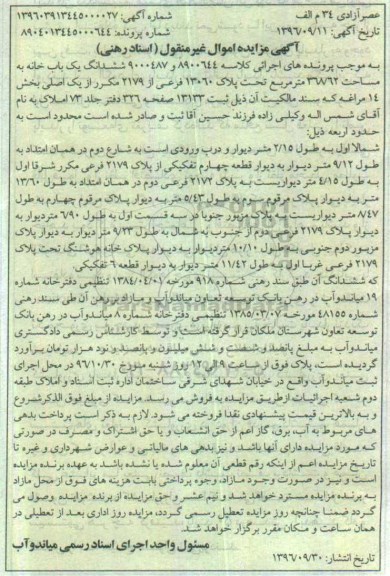 عصرآزادی ۳۴ م الف
شماره آگهی: ۱۳۹۶۰۳۹۱۳۴۴۵۰۰۰۰۲۷
تاریخ آگهی: ۱۳۹۶/۰۹/۱۱
شماره پرونده: ۸۹۰۴۰۱۳۴۴۵۰۰۰۶۴۴
آگهی مزایده اموال غیرمنقول (اسناد رهنی)
به موجب پرونده های اجرائی کلاسه ۸۹۰۰۶۴۴ و ۹۰۰۰۴۸۷ ششدانگ یک باب خانه به
مساحت ۳۶۸/۶۲ مترمربع تحت پلاک ۱۳۰۶۰ فرعی از ۲۱۷۹ مکرر از یک اصلی بخش
۱۴ مراغه که سند مالکیت آن ذیل ثبت ۱۳۱۳۳ صفحه ۳۲۶ دفتر جلد ۷۳ املاک به نام
آقای شمس اله وکیلی زاده فرزند حسین آقا ثبت و صادر شده است محدود است به
حدود اربعه ذیل:
شمالا اول به طول ۲/۱۵ متر دیوار و درب ورودی است به شارع دوم در همان امتداد به
طول ۹/۱۲ متر دیوار به دیوار قطعه چهارم تفکیکی از پلاک ۲۱۷۹ فرعی مکرر شرقا اول
به طول ۴/۱۵ متر دیواریست به پلاک ۲۱۷۲ فرعی دوم در همان امتداد به طول ۱۳/۶۰
متر به دیوار پلاک مرقوم سوم به طول ۵/۴۳ متر به دیوار پلاک مرقوم چهارم به طول
۸/۴۷ متر دیواریست به پلاک مزبور جنوبا در سه قسمت اول به طول ۶/۹۰ متردیوار به
دیوار پلاک ۲۱۷۹ فرعی دوم از جنوب به شمال به طول ۹/۲۳ متر دیوار به دیوار پلاک
مزبور دوم جنوبی به طول ۱۰/۱۰ متردیوار به دیوار پلاک خانه هوشنگ تحت پلاک
۲۱۷۹ فرعی غربا اول به طول ۱۱/۴۲ متر دیوار به دیوار قطعه ۶ تفکیکی.
که ششدانگ آن طبق سند رهنی شماره ۹۱۸ مورخه ۱۳۸۴/۰۴/۰۱ تنظیمی دفترخانه شماره
۱۹ میاندوآب در رهن بانک توسعه تعاون میاندوآب و مازاد بر رهن آن طی سند رهنی
شماره ۴۸۱۵۵ مورخه ۱۳۸۵/۰۳/۰۷ تنظیمی دفترخانه شماره ۸ میاندوآب در رهن بانک
توسعه تعاون شهرستان ملکان قرار گرفته است و توسط کارشناس رسمی دادگستری
میاندوآب به مبلغ پانصد و شصت و شش میلیون و پانصد و نود هزار تومان برآورد
گردیده است، پلاک فوق از ساعت ۹ الی ۱۲ روز شنبه مورخ ۹۶/۱۰/۳۰ در محل اجرای
ثبت میاندوآب واقع در خیابان شهدای شرقی ساختمان اداره ثبت اسناد و املاک طبقه
دوم شعبه اجرائیات ازطریق مزایده به فروش می رسد. مزایده از مبلغ فوق الذکرشروع
و به بالاترین قیمت پیشنهادی نقدا فروخته می شود. لازم به ذکر است پرداخت بدهی
های مربوط به آب، برق، گاز اعم از حق انشعاب و یا حق اشتراک و مصرف در صورتی
که مورد مزایده دارای آنها باشد و نیزبدهی های مالیاتی و عوارض شهرداری و غیره تا
تاریخ مزایده اعم از اینکه رقم قطعی آن معلوم شده یا نشده باشد به عهده برنده مزایده
است و نیز در صورت وجود مازاد، وجوه پرداختی بابت هزینه های فوق از محل مازاد
به برنده مزایده مسترد خواهد شد و نیم عشر و حق مزایده از برنده مزایده وصول می
گردد ضمنا چنانچه روز مزایده تعطیل رسمی گردد، مزایده روز اداری بعد از تعطیلی در
همان ساعت و مکان مقرر برگزار خواهد شد.
مسئول واحد اجرای اسناد رسمی میاندوآب
تاریخ انتشار: ۱۳۹۶/۰۹/۳۰